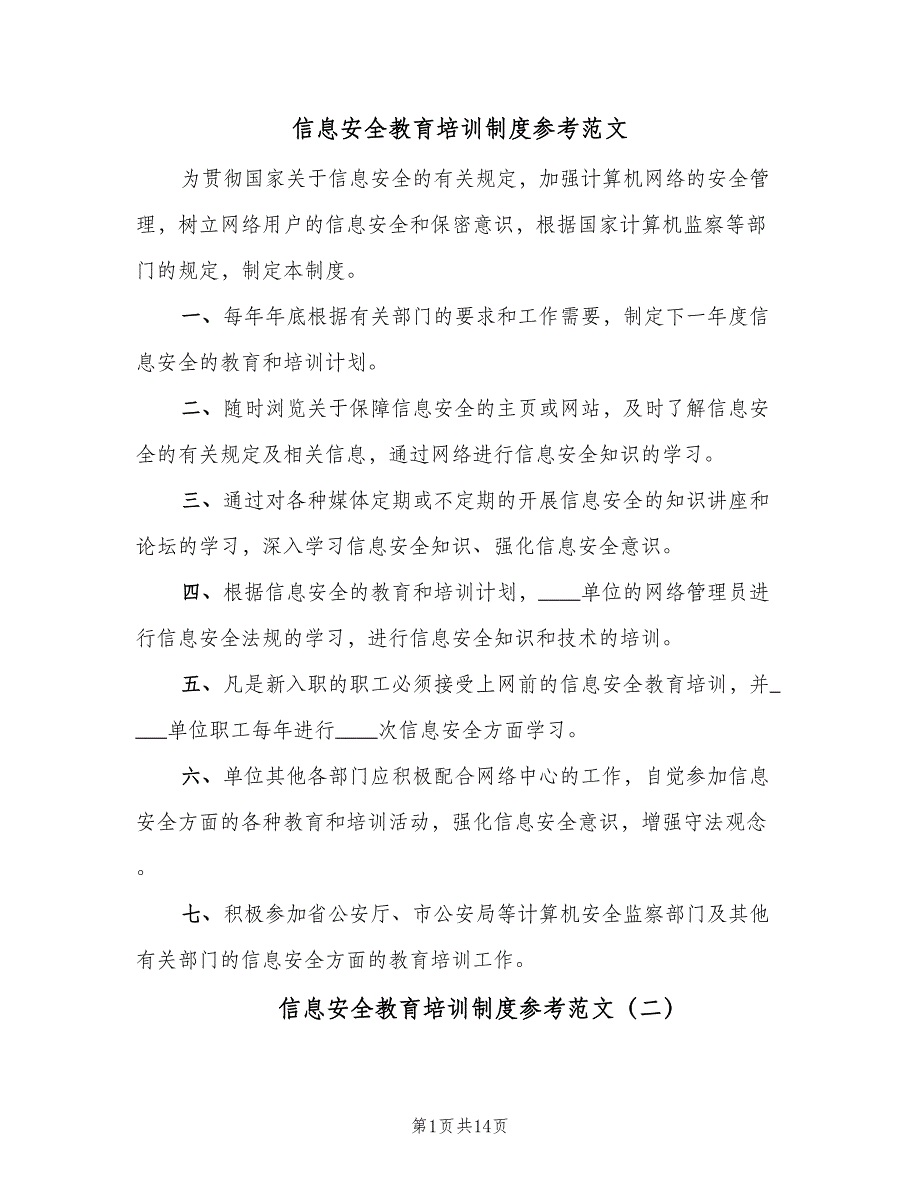 信息安全教育培训制度参考范文
为贯彻国家关于信息安全的有关规定，加强计算机网络的安全管
理，树立网络用户的信息安全和保密意识，根据国家计算机监察等部
门的规定，制定本制度。
一、每年年底根据有关部门的要求和工作需要，制定下一年度信
息安全的教育和培训计划。
二、随时浏览关于保障信息安全的主页或网站，及时了解信息安
全的有关规定及相关信息，通过网络进行信息安全知识的学习。
三、通过对各种媒体定期或不定期的开展信息安全的知识讲座和
论坛的学习，深入学习信息安全知识、强化信息安全意识。
四、根据信息安全的教育和培训计划，____单位的网络管理员进
行信息安全法规的学习，进行信息安全知识和技术的培训。
五、凡是新入职的职工必须接受上网前的信息安全教育培训，并_
___单位职工每年进行____次信息安全方面学习。
六、单位其他各部门应积极配合网络中心的工作，自觉参加信息
安全方面的各种教育和培训活动，强化信息安全意识，增强守法观念
。
七、积极参加省公安厅、市公安局等计算机安全监察部门及其他
有关部门的信息安全方面的教育培训工作。
信息安全教育培训制度参考范文（二）
第1页共14页